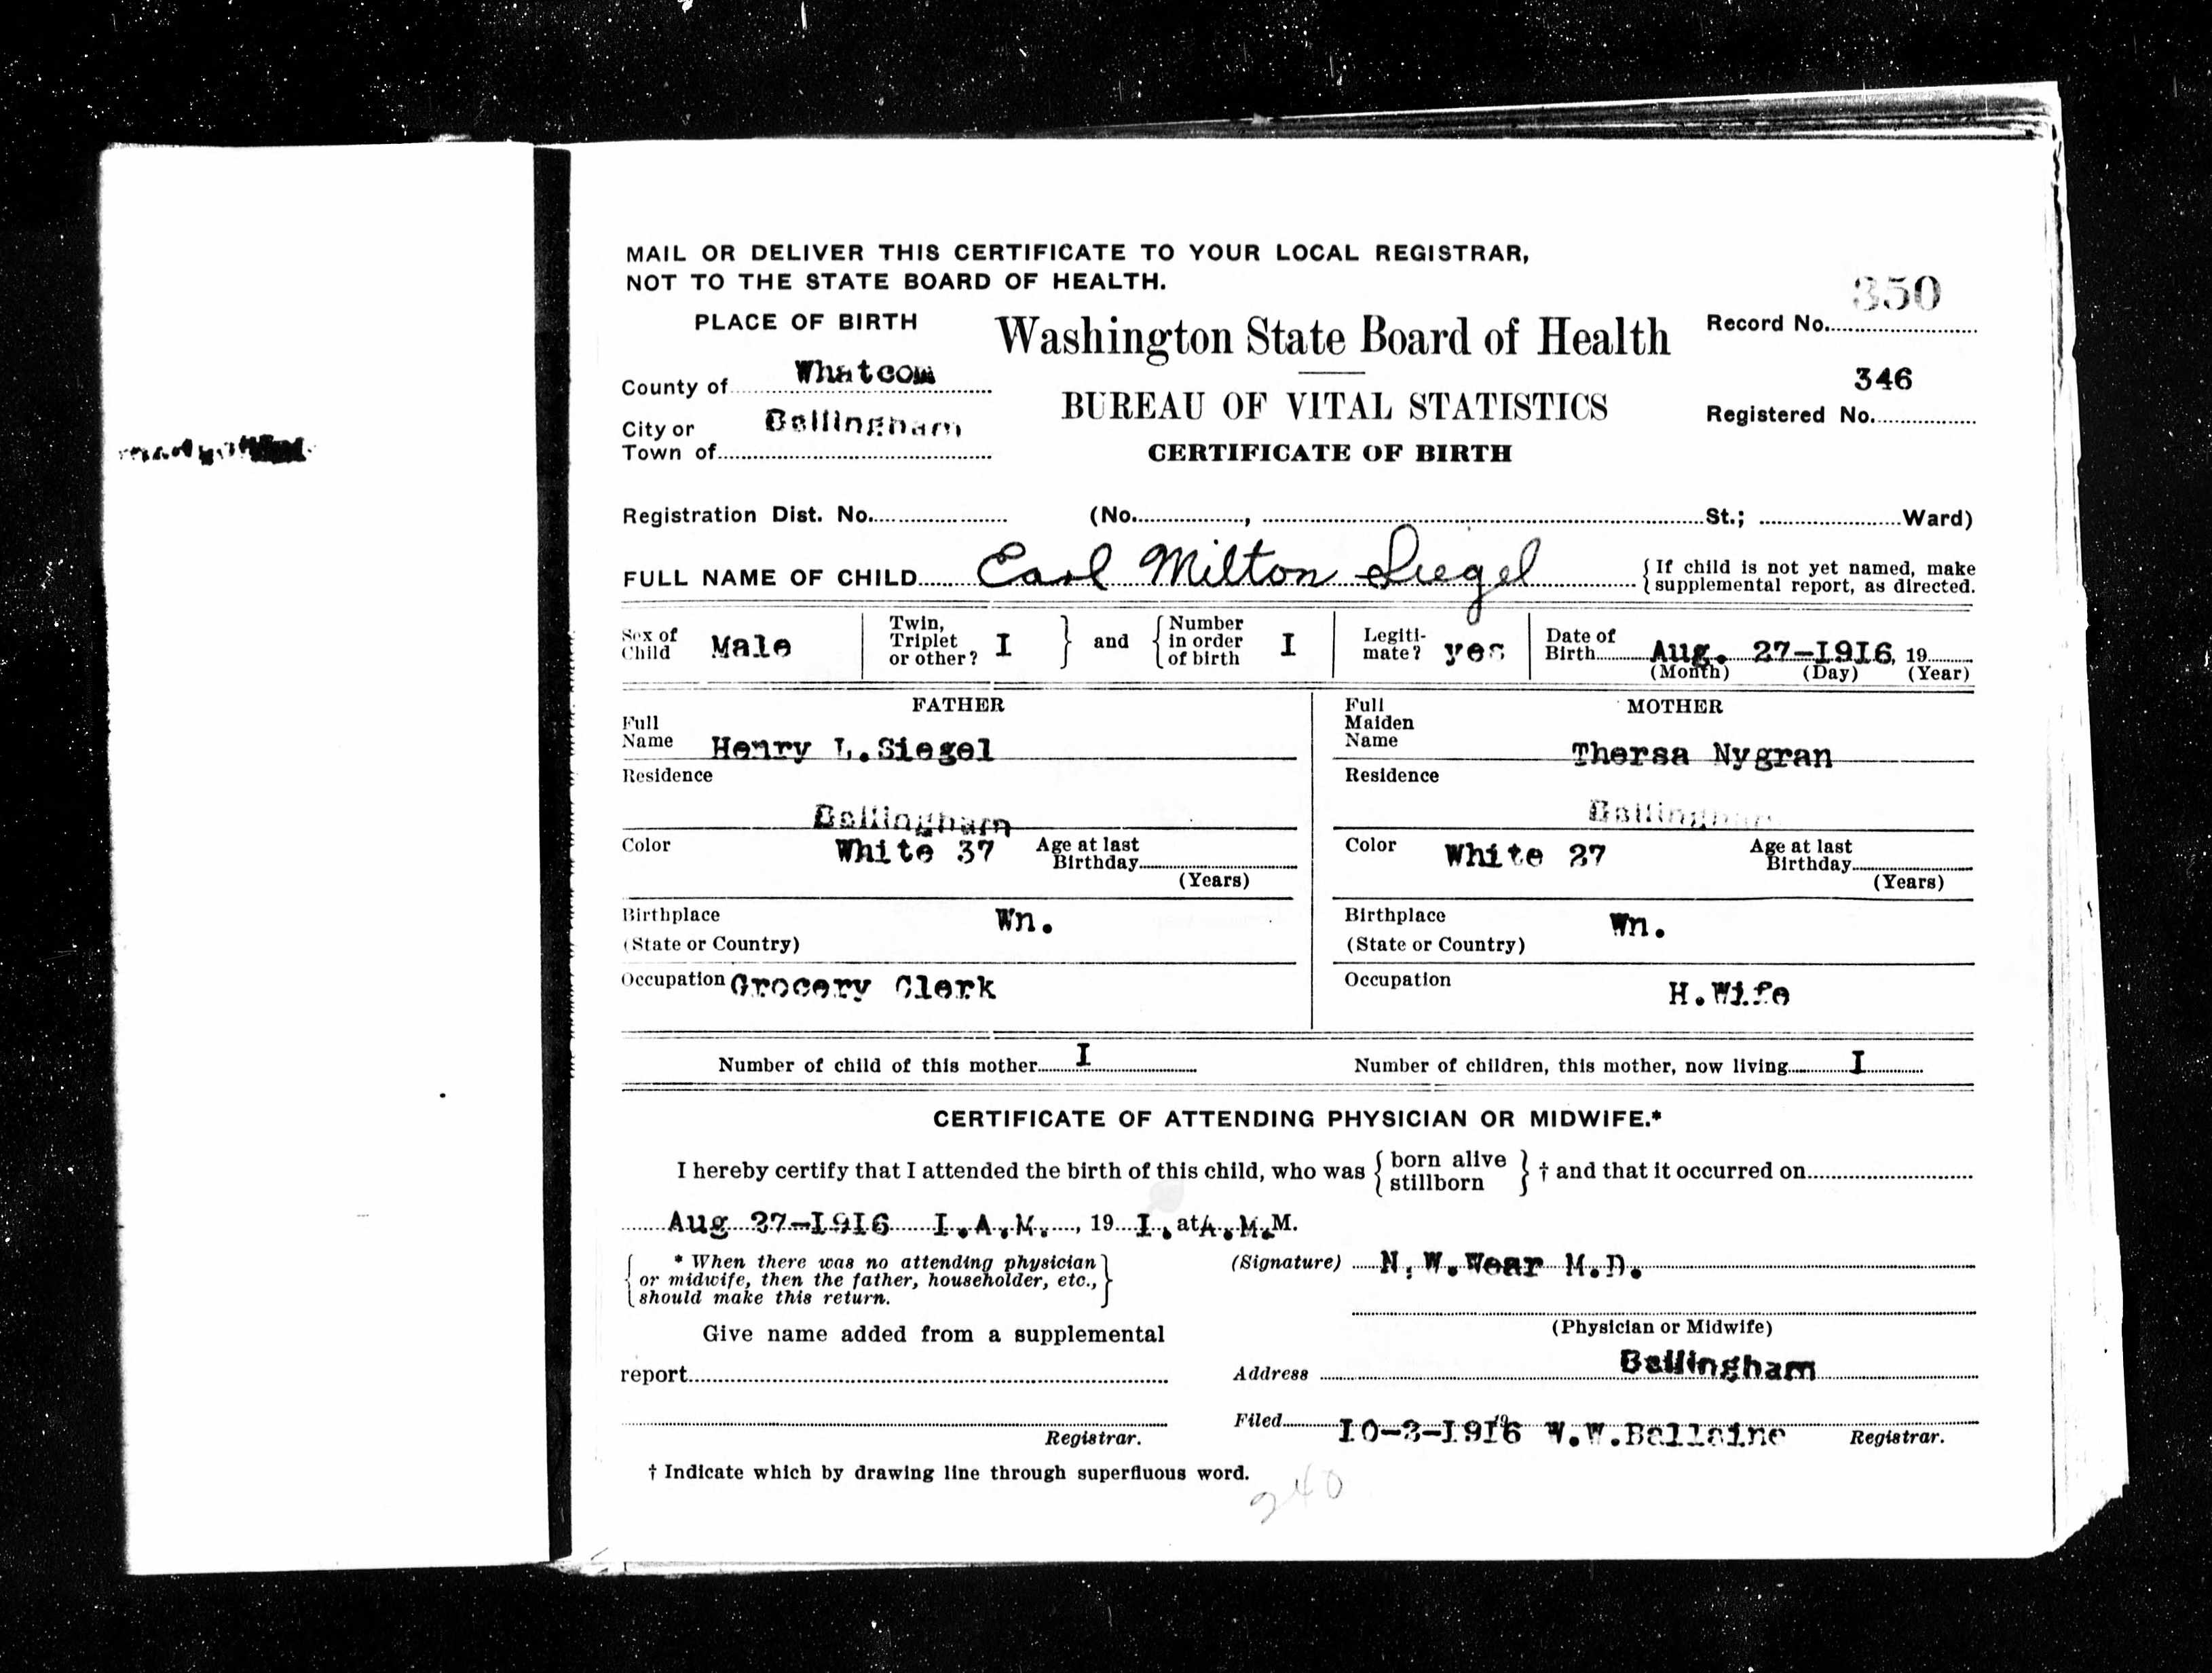 MAIL OR DELIVER THIS CERTIFICATE TO YOUR LOCAL REGISTRAR,
NOT TO THE STATE BOARD OF HEALTH.
PLACE OF BIRTH
County of Whatcom
City or
Town of Bellingham
Washington State Board of Health
BUREAU OF VITAL STATISTICS
CERTIFICATE OF BIRTH
Record No. 350
Registered No. 346
Registration Dist. No. (No. , St.; Ward)
FULL NAME OF CHILD Earl Milton Siegel {If child is not yet named, make
supplemental report, as directed.
Sex of
Child Male
Twin,
Triplet
or other? I } and { Number
in order
of birth I
Legiti-
mate? yes
Date of
Birth Aug. 27-1916, 19
(Month) (Day) (Year)
FATHER
Full
Name Henry L.Siegel
Residence
Bellingham
Color White 37 Age at last
Birthday
(Years)
Birthplace Wn.
(State or Country)
Occupation Grocery Clerk
MOTHER
Full
Maiden
Name Thersa Nygran
Residence
Bellingham
Color White 27 Age at last
Birthday
(Years)
Birthplace Wn.
(State or Country)
Occupation H.Wife
Number of child of this mother I Number of children, this mother, now living I
CERTIFICATE OF ATTENDING PHYSICIAN OR MIDWIFE.*
I hereby certify that I attended the birth of this child, who was { born alive
stillborn } † and that it occurred on
Aug 27-1916 I.A.M. , 19 I. at A.M.M.
{ * When there was no attending physician
or midwife, then the father, householder, etc.,
should make this return. }
(Signature) N.W.Wear M.D.
(Physician or Midwife)
Give name added from a supplemental
report
Registrar.
Address Bellingham
Filed 10-3-1916 W.W.Ballaine Registrar.
† Indicate which by drawing line through superfluous word.
240